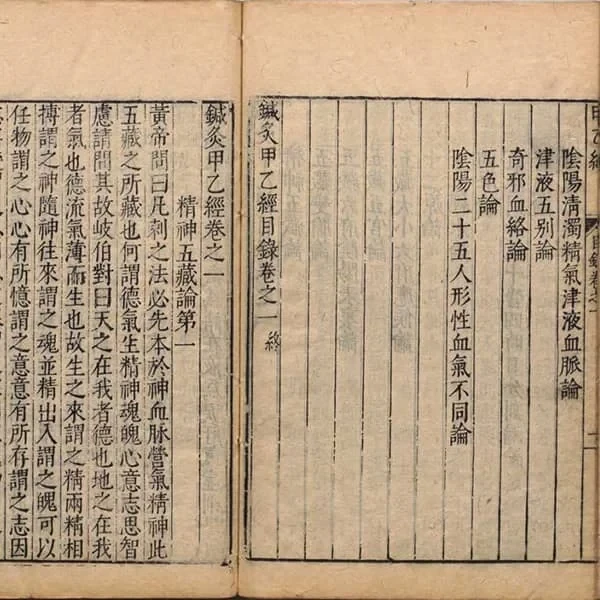 甲乙經
目錄卷之一
陰陽清濁精氣津液血脈論
津液五別論
奇邪血絡論
五色論
陰陽二十五人形性血氣不同論
鍼灸甲乙經目錄卷之一 終
鍼灸甲乙經卷之一
精神五藏論第一
黃帝問曰凡刺之法必先本於神血脉營氣精神此
五藏之所藏也何謂德氣生精神魂魄心意志思智
慮請問其故岐伯對曰天之在我者德也地之在我
者氣也德流氣薄而生也故生之來謂之精兩精相
搏謂之神隨神往來謂之魂並精出入謂之魄可以
任物謂之心心有所憶謂之意意有所存謂之志因